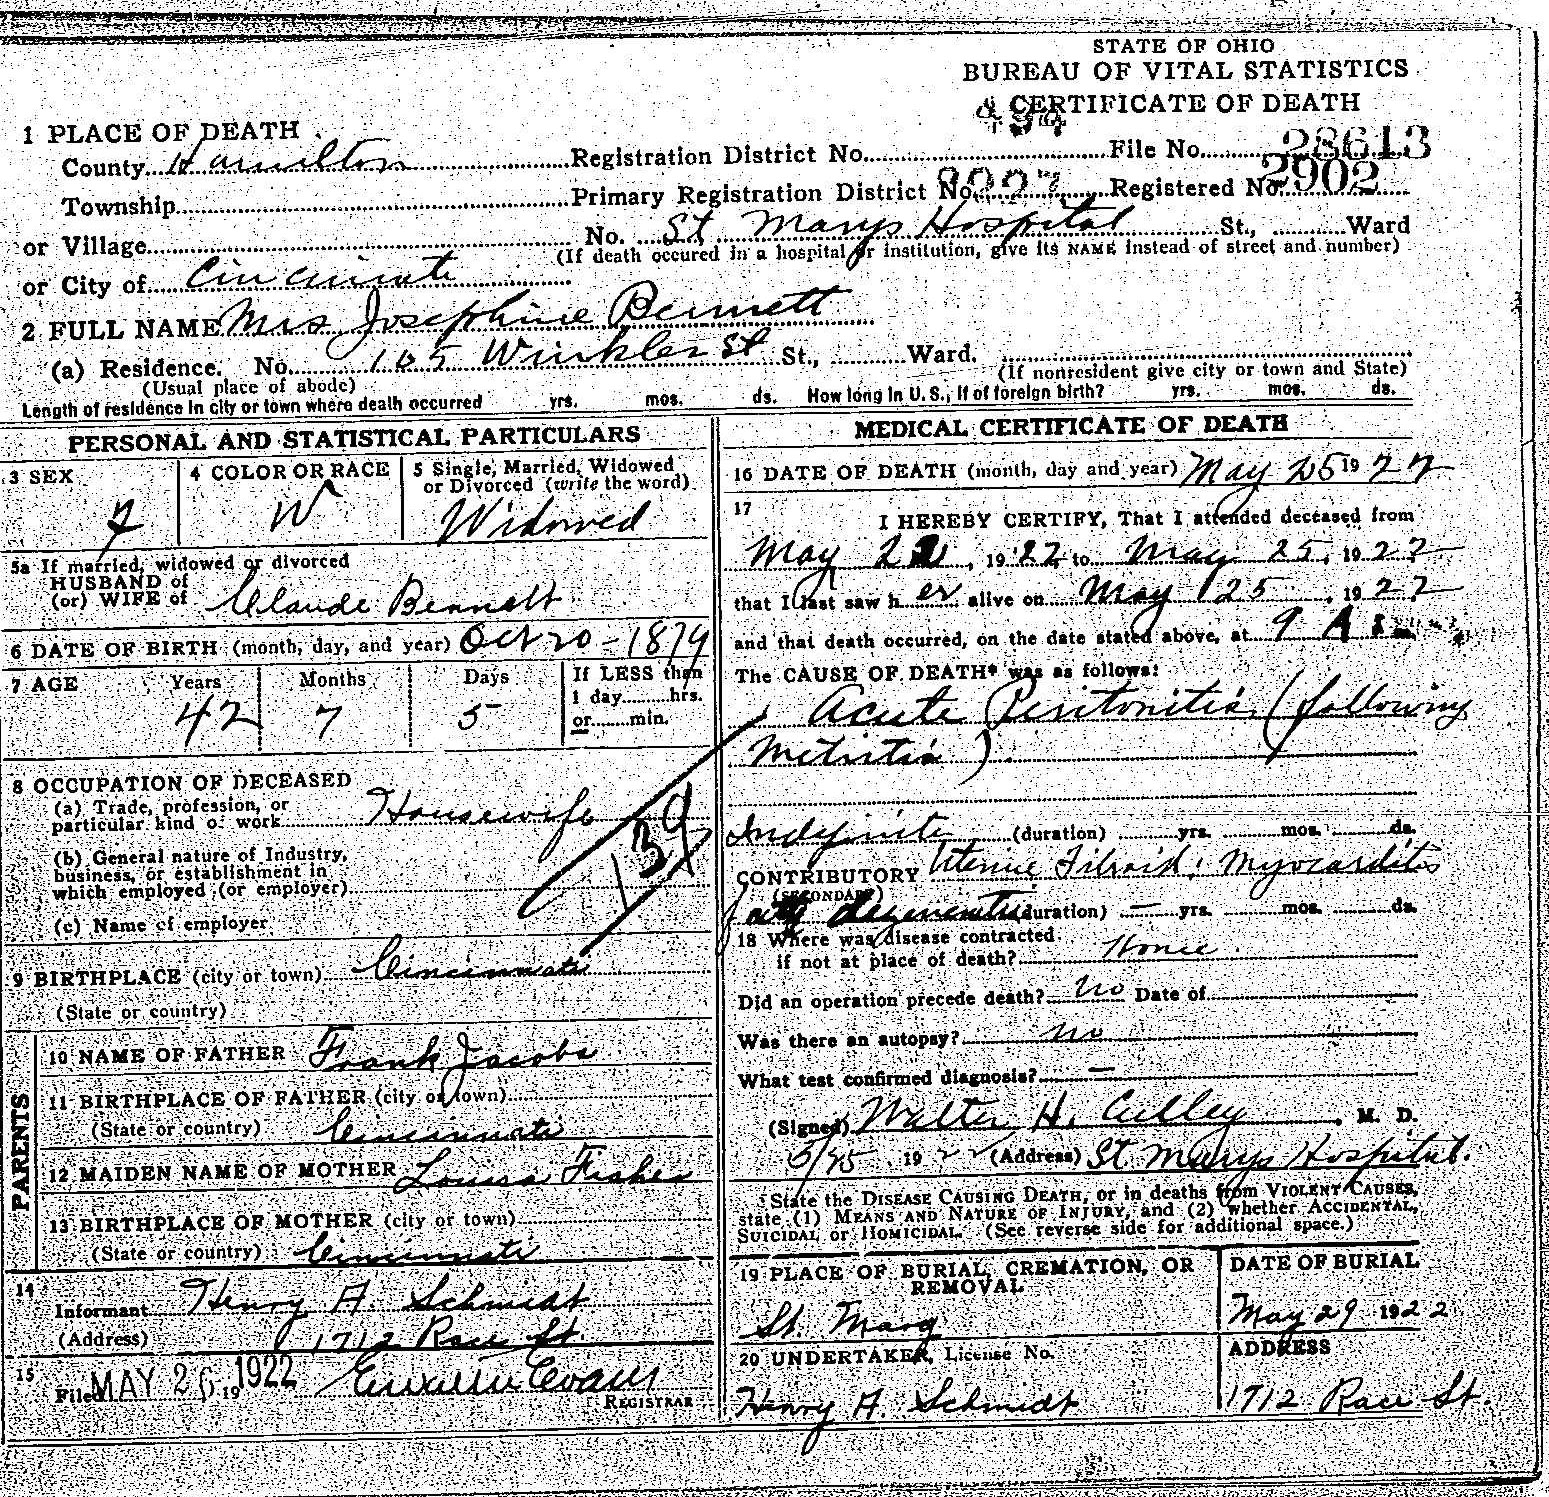 STATE OF OHIO
BUREAU OF VITAL STATISTICS
CERTIFICATE OF DEATH
1 PLACE OF DEATH
County Hamilton Registration District No. 494 File No. 28613
Township Primary Registration District No. 8227 Registered No. 2902
or Village No. St Marys Hospital St., Ward
(If death occured in a hospital or institution, give its NAME instead of street and number)
or City of Cincinnati
2 FULL NAME Mrs Josephine Bennett
(a) Residence. No. 165 Winkler St St., Ward.
(Usual place of abode) (If nonresident give city or town and State)
Length of residence in city or town where death occurred yrs. mos. ds. How long in U. S., if of foreign birth? yrs. mos. ds.
PERSONAL AND STATISTICAL PARTICULARS
3 SEX 4 COLOR OR RACE 5 Single, Married, Widowed
or Divorced (write the word)
F W Widowed
5a If married, widowed or divorced
HUSBAND of
(or) WIFE of Claude Bennett
6 DATE OF BIRTH (month, day, and year) Oct 20 - 1879
7 AGE Years Months Days If LESS than
1 day hrs.
or min.
42 7 5
8 OCCUPATION OF DECEASED
(a) Trade, profession, or
particular kind of work Housewife
139
(b) General nature of Industry,
business, or establishment in
which employed (or employer)
(c) Name of employer
9 BIRTHPLACE (city or town) Cincinnati
(State or country)
PARENTS
10 NAME OF FATHER Frank Jacobs
11 BIRTHPLACE OF FATHER (city or town)
(State or country) Cincinnati
12 MAIDEN NAME OF MOTHER Louisa Fisher
13 BIRTHPLACE OF MOTHER (city or town)
(State or country) Cincinnati
14
Informant Henry A. Schmidt
(Address) 1712 Race St
15
Filed MAY 26 19 1922 Evans
REGISTRAR
MEDICAL CERTIFICATE OF DEATH
16 DATE OF DEATH (month, day and year) May 25 19 22
17
I HEREBY CERTIFY, That I attended deceased from
May 22, 19 22 to May 25, 19 22
that I last saw her alive on May 25, 19 22
and that death occurred, on the date stated above, at 9 A m.
The CAUSE OF DEATH* was as follows:
Acute Peritonitis (following
Metritis).
Indefinite (duration) yrs. mos. ds.
CONTRIBUTORY Uterine Fibroid; Myocarditis
(SECONDARY)
fatty degeneration (duration) — yrs. mos. ds.
18 Where was disease contracted
if not at place of death? Home.
Did an operation precede death? no Date of
Was there an autopsy? no
What test confirmed diagnosis? —
(Signed) Walter H. Culley, M. D.
5/25, 19 22 (Address) St Marys Hospital.
*State the DISEASE CAUSING DEATH, or in deaths from VIOLENT CAUSES,
state (1) MEANS AND NATURE OF INJURY, and (2) whether ACCIDENTAL,
SUICIDAL or HOMICIDAL. (See reverse side for additional space.)
19 PLACE OF BURIAL, CREMATION, OR
REMOVAL
DATE OF BURIAL
St. Mary May 29 1922
20 UNDERTAKER, License No. ADDRESS
Henry A. Schmidt 1712 Race St.